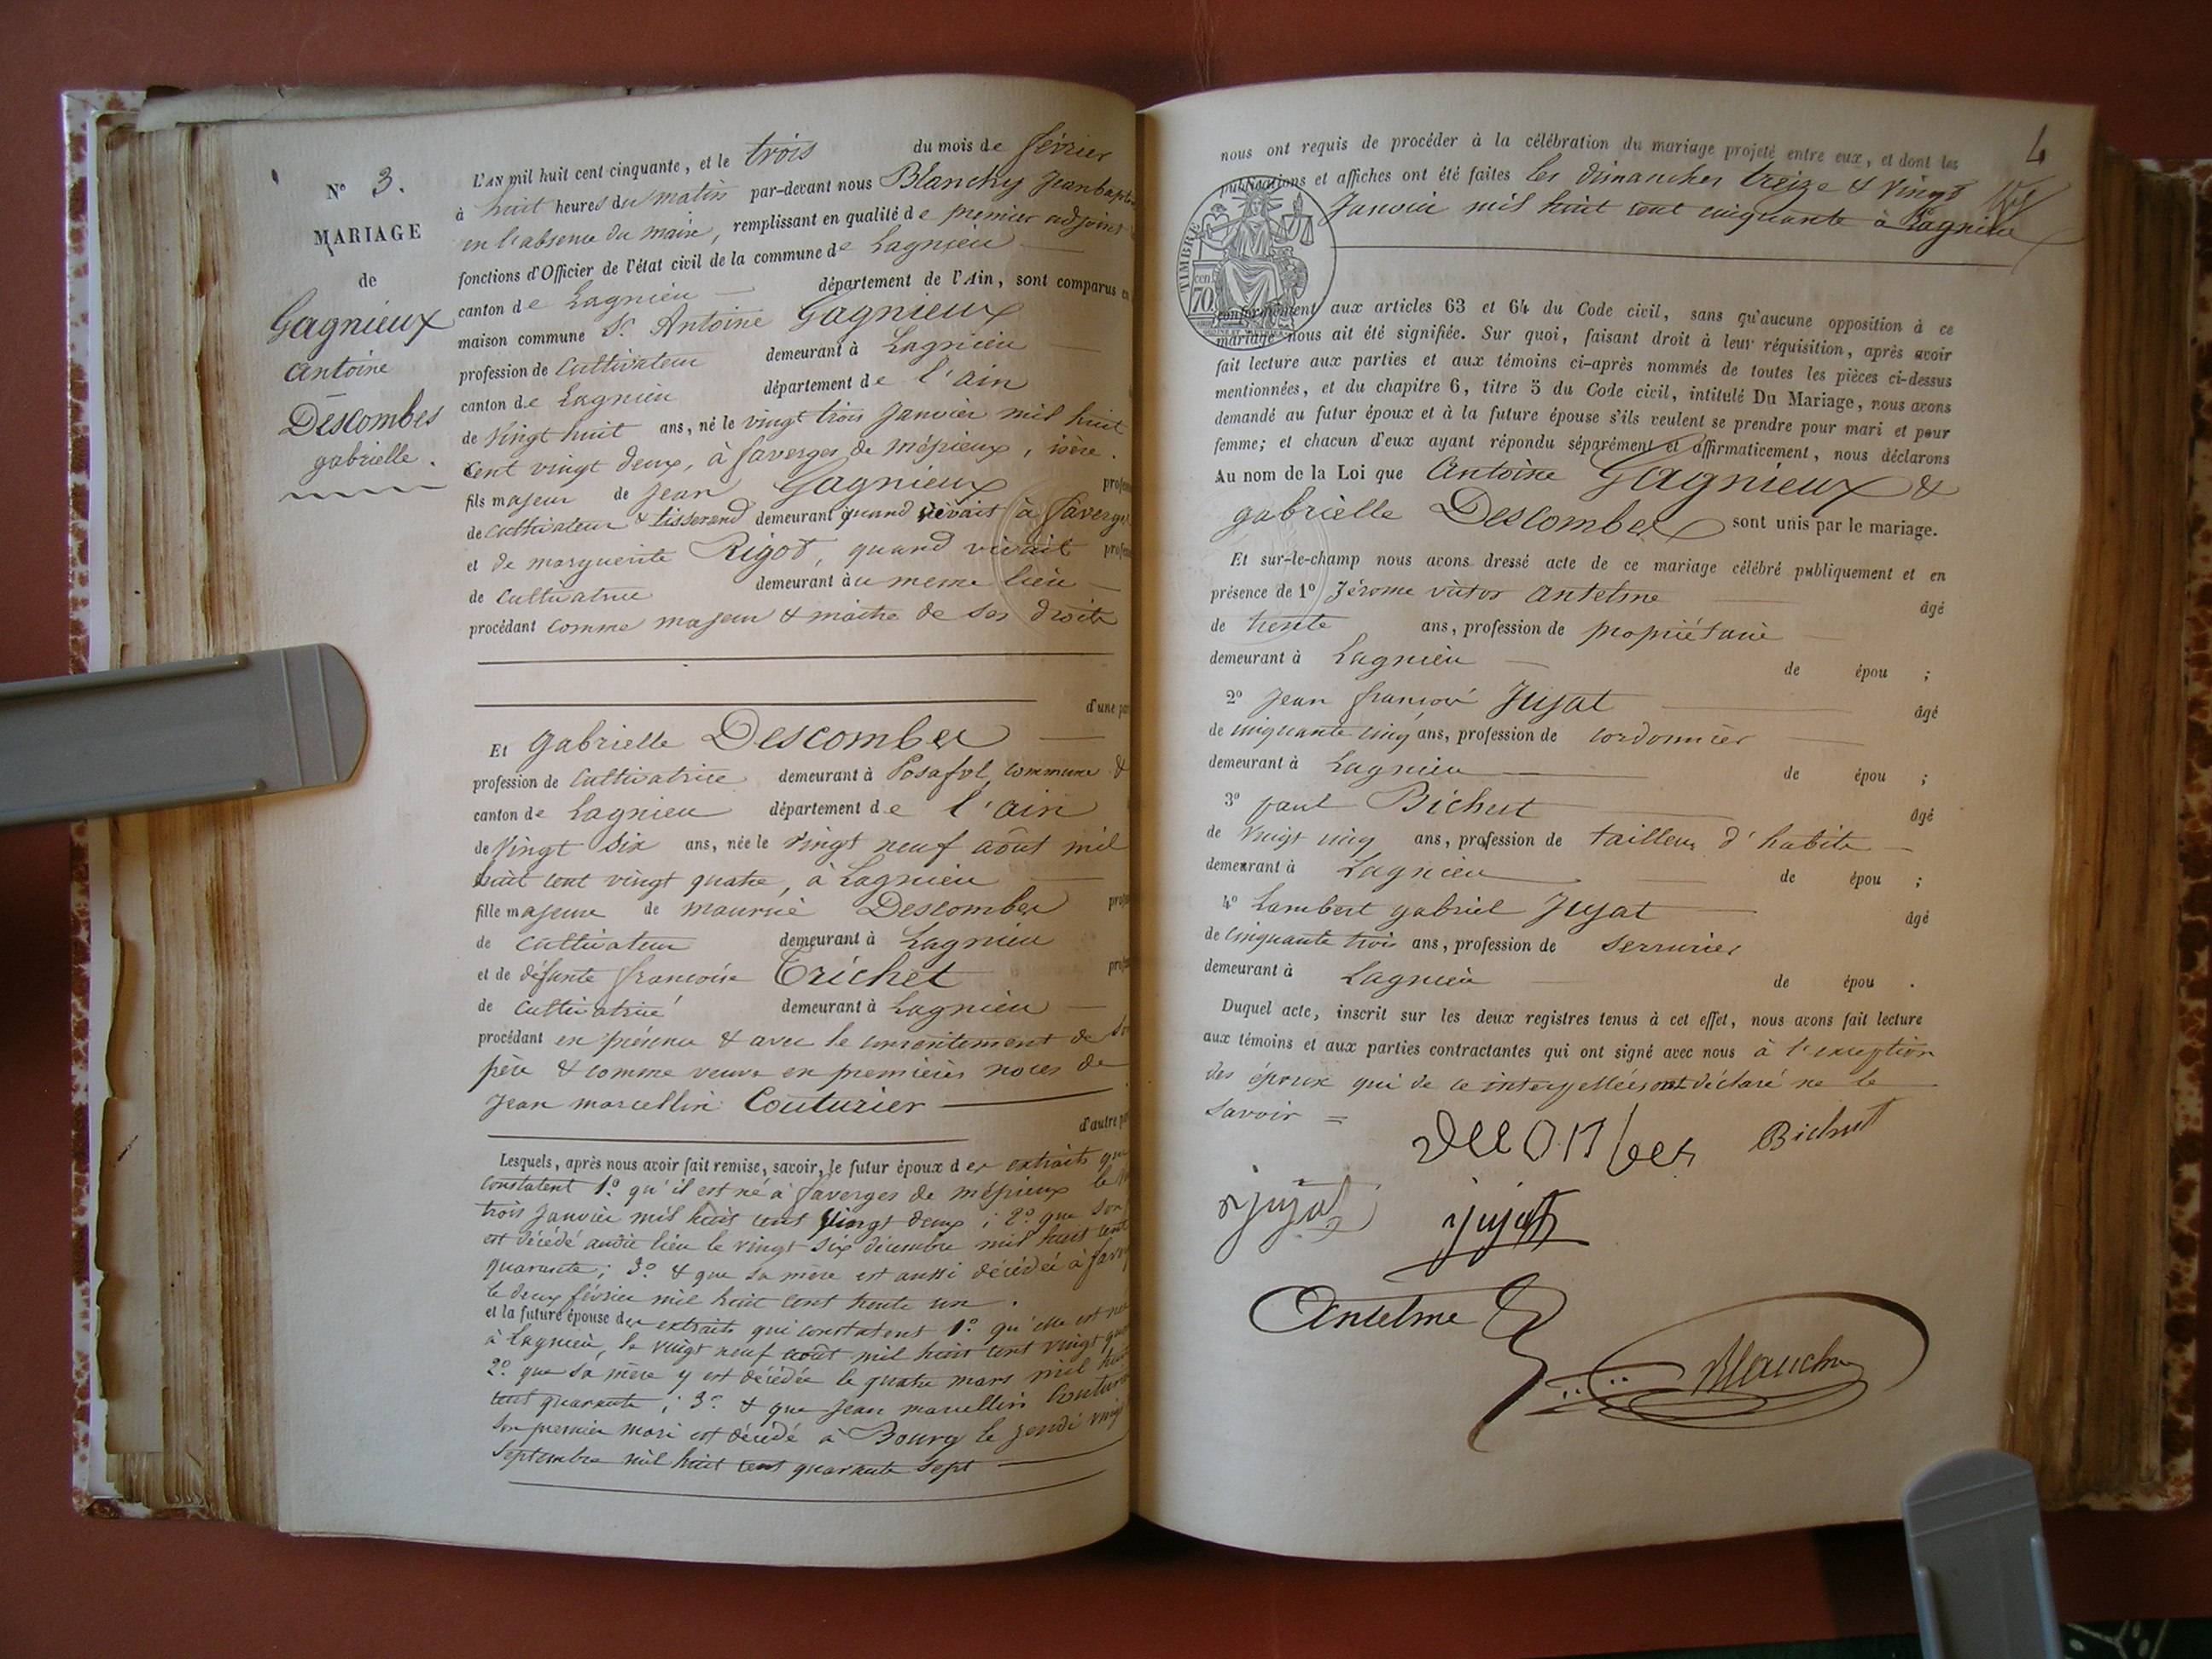 N° 3.
MARIAGE
de
Gagnieux
antoine
Descombes
gabrielle.
L'AN mil huit cent cinquante, et le trois du mois de février
à huit heures du matin par-devant nous Blanchy Jean bapt
en l'absence du maire, remplissant en qualité de premier adjoint
fonctions d'Officier de l'état civil de la commune de Lagnieu
canton de Lagnieu département de l'Ain, sont comparus en
maison commune Sr. Antoine Gagnieux
profession de Cultivateur demeurant à Lagnieu
canton de Lagnieu département de l'ain
de Vingt huit ans, né le vingt trois Janvier mil huit
cent vingt deux, à faverges de mépieux, isère.
fils majeur de Jean Gagnieux profes
de Cultivateur & tisserand demeurant quand vivait à faverge
et de marguerite Rigot, quand vivait profes
de Cultivatrice demeurant au meme lieu
procédant comme majeur & maitre de ses droits
d'une pa
Et gabrielle Descombes
profession de Cultivatrice demeurant à Posafol, commune &
canton de Lagnieu département de l'ain
de Vingt Six ans, née le Vingt neuf août mil
huit cent vingt quatre, à Lagnieu
fille majeure de maurice Descombes prof
de Cultivateur demeurant à Lagnieu
et de défunte francoise Trichet prof
de Cultivatrice demeurant à Lagnieu
procédant en présence & avec le consentement de So
père & comme veuve en premières noces de
Jean marcellin Couturier
d'autre p
Lesquels, après nous avoir fait remise, savoir, le futur époux des extraits qui
constatent 1° qu'il est né à faverges de mépieux le
trois Janvier mil huit cent Vingt deux ; 2° que son
est décédé audit lieu le vingt six décembre mil huit cent
quarante ; 3° & que sa mère est aussi décédée à fav
le deux février mil huit cent trente un.
et la future épouse des extraits qui constatent 1° qu'elle est né
à Lagnieu, le vingt neuf août mil huit cent vingt qu
2° que sa mère y est décédée le quatre mars mil hui
cent quarante ; 3° & que Jean marcellin Coutur
son premier mari est décédé à Bourg le jeudi ving
Septembre mil huit cent quarante Sept
4
nous ont requis de procéder à la célébration du mariage projeté entre eux, et dont les
publications et affiches ont été faites les dimanches treize & Vingt
Janvier mil huit cent cinquante à Lagnieu
TIMBRE
70
conformément aux articles 63 et 64 du Code civil, sans qu'aucune opposition à ce
mariage nous ait été signifiée. Sur quoi, faisant droit à leur réquisition, après avoir
fait lecture aux parties et aux témoins ci-après nommés de toutes les pièces ci-dessus
mentionnées, et du chapitre 6, titre 5 du Code civil, intitulé Du Mariage, nous avons
demandé au futur époux et à la future épouse s'ils veulent se prendre pour mari et pour
femme; et chacun d'eux ayant répondu séparément et affirmativement, nous déclarons
Au nom de la Loi que Antoine Gagnieux &
gabrielle Descombes sont unis par le mariage.
Et sur-le-champ nous avons dressé acte de ce mariage célébré publiquement et en
présence de 1° Jérome victor Antelme âgé
de trente ans, profession de propriétaire
demeurant à Lagnieu de épou ;
2° Jean francois Jujat âgé
de cinquante cinq ans, profession de cordonnier
demeurant à Lagnieu de épou ;
3° paul Bichut âgé
de Vingt cinq ans, profession de tailleur d'habits
demeurant à Lagnieu de épou ;
4° Lambert gabriel Jujat âgé
de cinquante trois ans, profession de serrurier
demeurant à Lagnieu de épou .
Duquel acte, inscrit sur les deux registres tenus à cet effet, nous avons fait lecture
aux témoins et aux parties contractantes qui ont signé avec nous à l'exception
des époux qui de ce interpellés ont déclaré ne le
savoir =
Bichut
jujat
jujat
Antelme
Blanchy